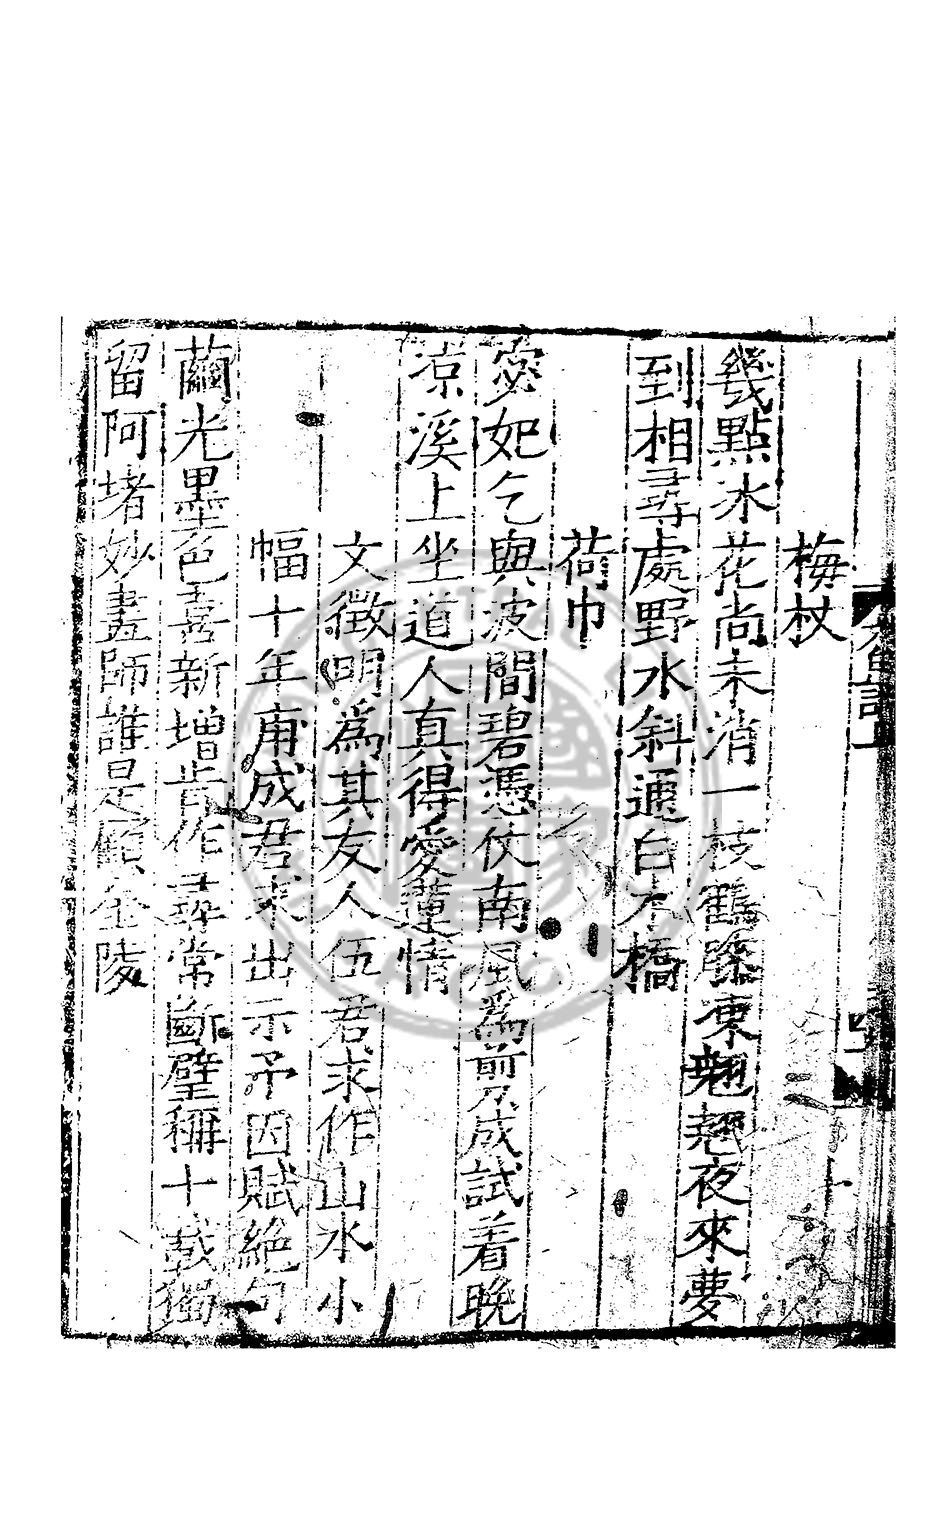 梅杖
幾點冰花尚未消一枝鶴膝凍翹翹夜來夢
到相尋處野水斜通白木橋
荷巾
宓妃乞與波間碧憑仗南風為剪成試着晚
凉溪上坐道人真得愛蓮情
文徵明為其友人伍君求作山水小
幅十年甫成君求出示予因賦絕句
繭光墨色喜新增肯作尋常斷璧稱十載獨
留阿堵妙畫師誰是顧金陵